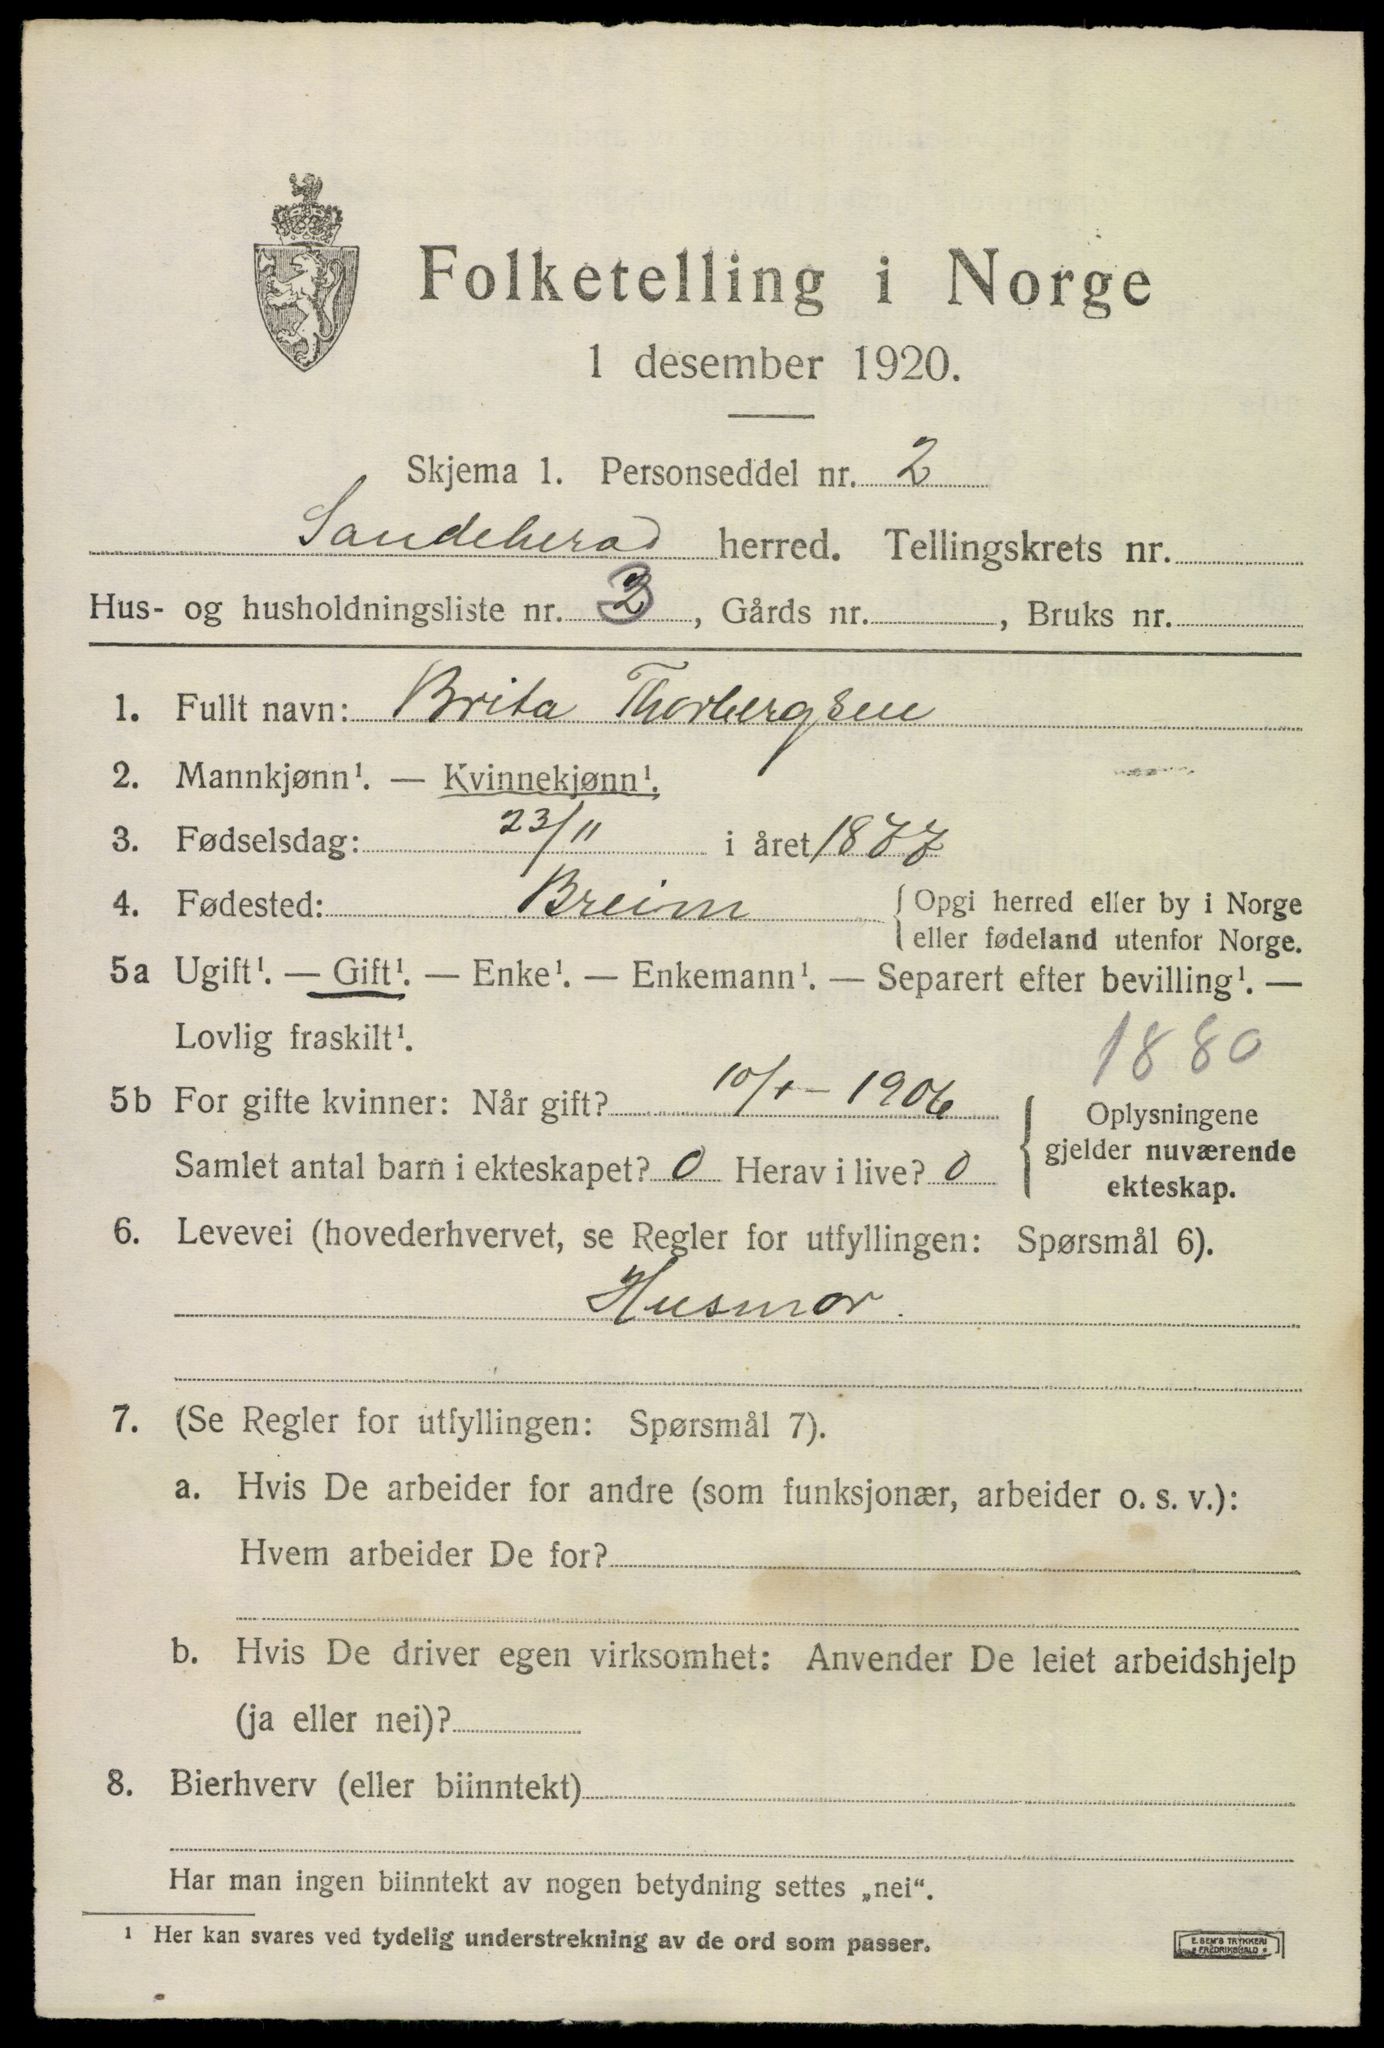 Folketelling i Norge
1 desember 1920.
Skjema 1. Personseddel nr. 2
Sandeherad herred. Tellingskrets nr.
Hus- og husholdningsliste nr. 3, Gårds nr. , Bruks nr.
1. Fullt navn: Brita Thorbergsen
2. Mannkjønn¹. — Kvinnekjønn¹.
3. Fødselsdag: 23/11 i året 1877
4. Fødested: Breim { Opgi herred eller by i Norge
eller fødeland utenfor Norge.
5a Ugift¹. — Gift¹. — Enke¹. — Enkemann¹. — Separert efter bevilling¹. —
Lovlig fraskilt¹.
1880
5b For gifte kvinner: Når gift? 10/1 - 1906
Samlet antal barn i ekteskapet? 0 Herav i live? 0
Oplysningene
gjelder nuværende
ekteskap.
6. Levevei (hovederhvervet, se Regler for utfyllingen: Spørsmål 6).
Husmor.
7. (Se Regler for utfyllingen: Spørsmål 7).
a. Hvis De arbeider for andre (som funksjonær, arbeider o. s. v.):
Hvem arbeider De for?
b. Hvis De driver egen virksomhet: Anvender De leiet arbeidshjelp
(ja eller nei)?
8. Bierhverv (eller biinntekt)
Har man ingen biinntekt av nogen betydning settes „nei“.
¹ Her kan svares ved tydelig understrekning av de ord som passer.
E. SEM'S TRYKKERI
FREDRIKSHALD